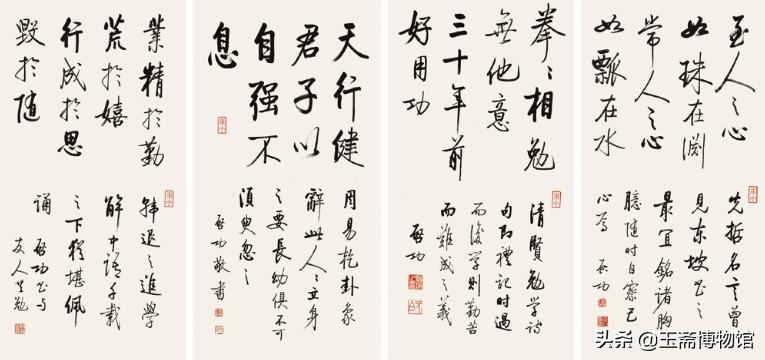 至人之心
如珠在淵
常人之心
如瓢在水
先哲名言曾
見東坡書之
最宜銘諸胸
臆随时自察己
心焉 啟功
拳々相勉
無他意
三十年前
好用功
清賢勉学诗
句即禮記时過
而後学則勤苦
而難成之義
啟功
天行健
君子以
自强不
息
周易乾卦象
辭此人人立身
之要長幼俱不可
須臾忽之
啟功敬書
業精於勤
荒於嬉
行成於思
毁於随
韩退之進学
解中語千載
之下猶堪佩
誦 啟功书与
友人共勉
头条 @玉斋博物馆